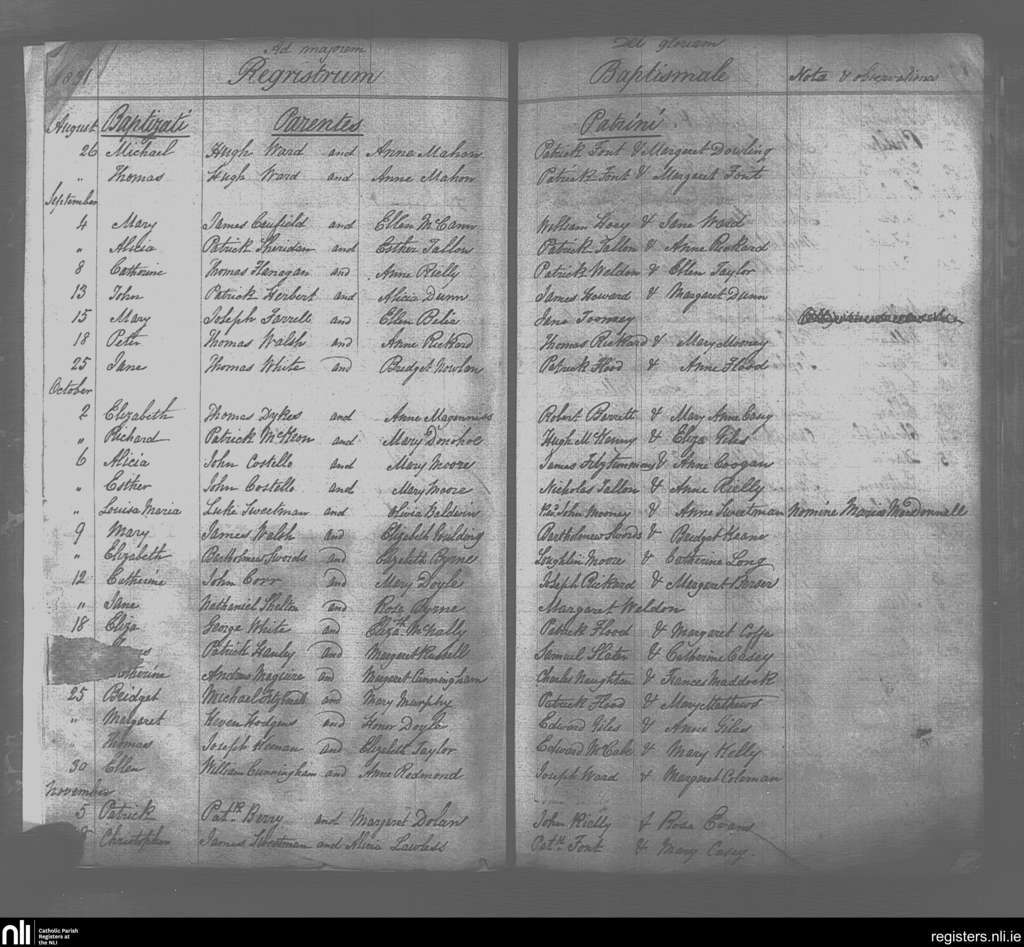 Ad majorem Dei gloriam
1831 Registrum Baptismale Nota & observationes
August Baptizati Parentes Patrini
26 Michael Hugh Ward and Anne Mahon Patrick Font & Margaret Dowling
" Thomas Hugh Ward and Anne Mahon Patrick Font & Margaret Font
September
4 Mary James Caufield and Ellen McCann William Hoey & Jane Ward
" Alicia Patrick Sheridan and Esther Tallon Patrick Tallon & Anne Rickard
8 Catherine Thomas Flanagan and Anne Rielly Patrick Weldon & Ellen Taylor
13 John Patrick Herbert and Alicia Dunn James Howard & Margaret Dunn
15 Mary Joseph Farrell and Ellen Jane Toomey
18 Peter Thomas Walsh and Anne Rickard Thomas Rickard & Mary Mooney
25 Jane Thomas White and Bridget Nowlan Patrick Flood & Anne Flood
October
2 Elizabeth Thomas Dykes and Anne Magenniss Robert Barrett & Mary Anne Casey
" Richard Patrick McKeon and Mary Donohoe Hugh McKenny & Eliza Giles
6 Alicia John Costello and Mary Moore James Fitzsimmons & Anne Coogan
" Esther John Costello and Mary Moore Nicholas Tallon & Anne Rielly
" Louisa Maria Luke Sweetman and Olivia Baldwin Revd John Mooney & Anne Sweetman Nomine Maria MacDonnall
9 Mary James Walsh and Elizabeth Goulding Bartholomew Swords & Bridget Keane
" Elizabeth Bartholomew Swords and Elizabeth Byrne Loughlin Moore & Catherine Long
12 Catherine John Corr and Mary Doyle Joseph Rickard & Margaret
" Jane Nathaniel Shelton and Rose Byrne Margaret Weldon
18 Eliza George White and Elizath McNally Patrick Flood & Margaret Coffe
Patrick Hanley and Margaret Russell Samuel Slater & Catherine Casey
Andrew Maguire and Margaret Cunningham Charles Naughton & Frances Maddock
25 Bridget Michael and Mary Murphy Patrick Flood & Mary Mathews
" Margaret Keven Hodgens and Honor Doyle Edward Giles & Anne Giles
" Thomas Joseph Keenan and Elizabeth Taylor Edward McCabe & Mary Kelly
30 Ellen William Cunningham and Anne Redmond Joseph Ward & Margaret Coleman
November
5 Patrick Patk Berry and Margaret Dolan John Rielly & Rosa Evans
Christopher James Sweetman and Alicia Lawless Patk Font & Mary Casey.
nli
Catholic Parish
Registers at
the NLI
registers.nli.ie